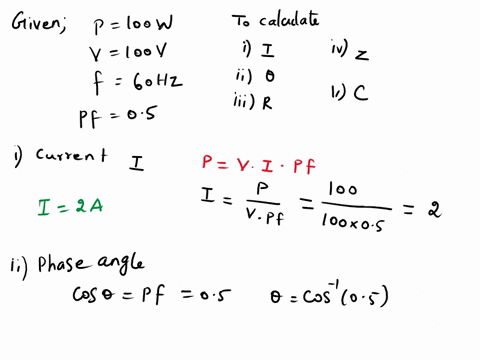 Given; P = 100W
V = 100V
f = 60HZ
Pf = 0.5
To calculate
i) I
ii) θ
iii) R
iv) Z
v) C
i) Current I
P = V. I. Pf
I = P / V.Pf = 100 / 100x0.5 = 2
I = 2A
ii) Phase angle
Cosθ = Pf = 0.5 θ = Cos⁻¹(0.5)